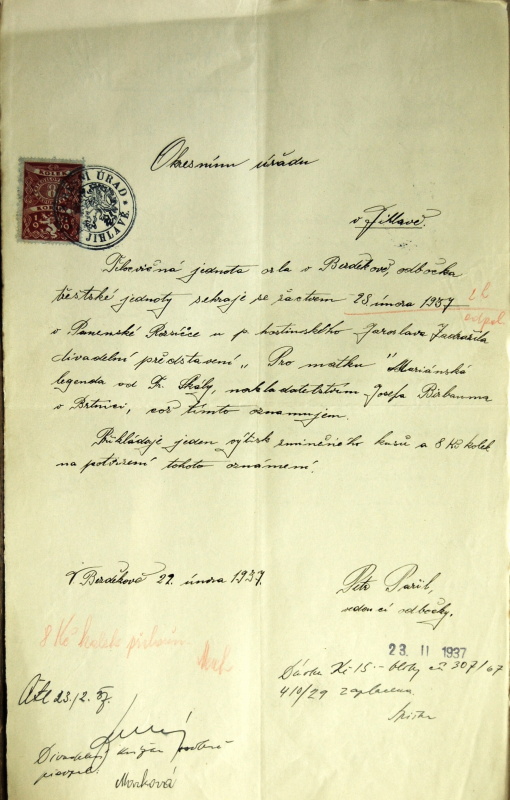 Okresnímu úřadu
KOLEK
8
ÚŘAD
JIHLAVĚ
v Jihlavě.
Tělocvičná jednota orla v Bezděkově, odbočka
třešťské jednoty sehraje se žactvem 28. února 1937
v Panenské Rozsíčce u p. hostinského Jaroslava
divadelní představení „Pro matku" Mariánská
legenda od Fr. Skály, nakladatelstvím Josefa Birbauma
v Brtnici, což tímto oznamujem.
Přikládaje jeden výtisk zmíněného kusu a 8 Kč kolek
na potvrzení tohoto oznámení.
V Bezděkově 22. února 1937.
Petr Pařil
vedoucí odbočky.
8 Kč kolek
23 II 1937
Dávka Kč 15.- bloky čž 307/67
410/29 zaplacena
23./2. 37
Divadelní
Morsková